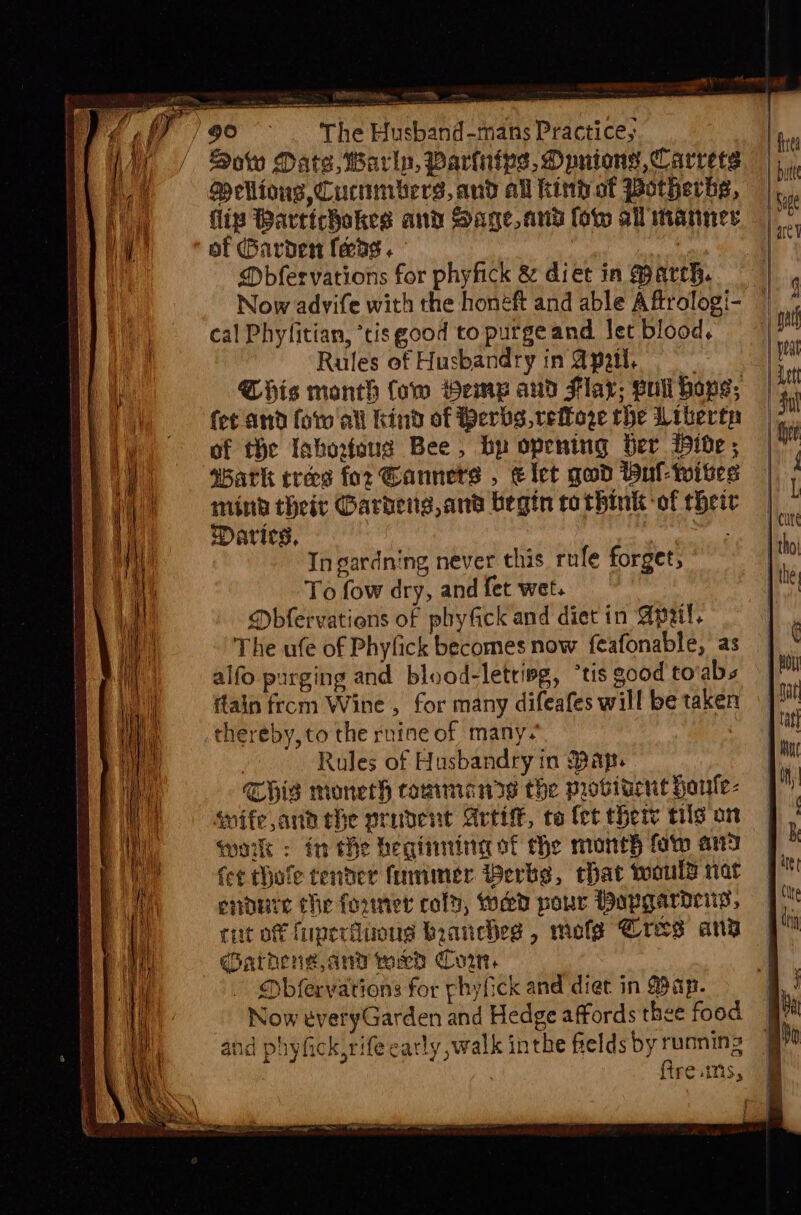 90 The Husband-mans Practice,
Sow Oats, Barly, Parsnips, Onnions, Carrets
Mellions, Cucumbers, and all kind of Potherbs,
slip Hartichokes and Sage, and sow all manner
of Garden sæds.
Observations for physick & diet in March.
Now advise with the honest and able Astrologi-
cal Physitian, 'tis good to purge and let blood.
Rules of Husbandry in April.
This month sow Hemp and Flax; pull hops;
set and sow all kind of Herbs, restore the Liberty
of the laborious Bee, by opening her Hive;
Bark træs for Tanners, & let good Hus-wives
mind their Gardens, and begin to think of their
Daries.
In gardning never this rule forget,
To sow dry, and set wet.
Observations of physick and diet in April.
The use of Physick becomes now seasonable, as
also purging and blood-letting, 'tis good to abs
stain from Wine, for many diseases will be taken
thereby, to the ruine of many.
Rules of Husbandry in May.
This moneth commands the provident house-
wife, and the prudent Artist, to set their tils on
work: in the beginning of the month sow and
set those tender summer Herbs, that would nat
endure the former cold, wæd your Hopgardens,
cut off superfluous branches, moss Træs and
Gardens, and wæd Corn.
Observations for physick and diet in May.
Now everyGarden and Hedge affords thee food
and physick, rise early, walk in the fields by running
streams,